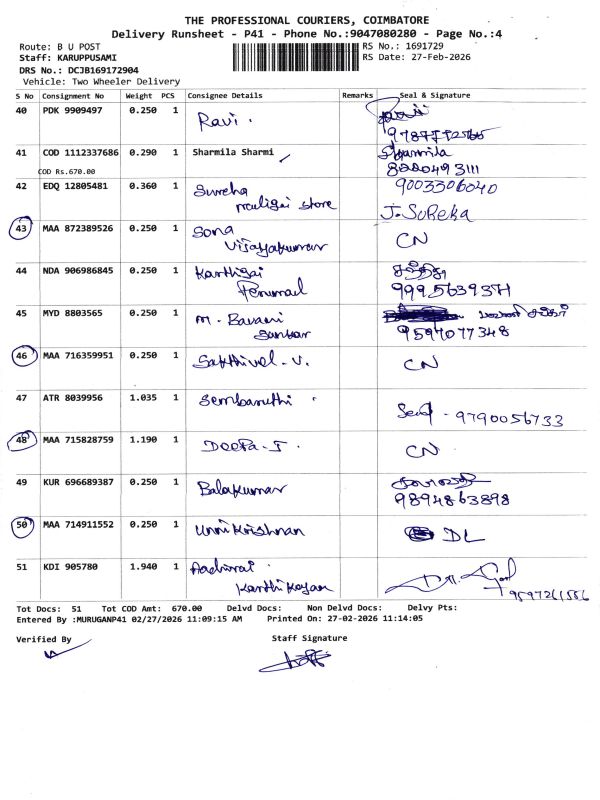 THE PROFESSIONAL COURIERS, COIMBATORE
Delivery Runsheet - P41 - Phone No.:9047080280 - Page No.:4
Route: B U POST RS No.: 1691729
Staff: KARUPPUSAMI RS Date: 27-Feb-2026
DRS No.: DCJB169172904
Vehicle: Two Wheeler Delivery
S No Consignment No Weight PCS Consignee Details Remarks Seal & Signature
40 PDK 9909497 0.250 1 Ravi.
41 COD 1112337686 0.290 1 Sharmila Sharmi Sharmila
COD Rs.670.00 8220493111
42 EDQ 12805481 0.360 1 Surekha 9003306040
maligai store J. SUReKa
43 MAA 872389526 0.250 1 Sona CN
Vijayakumar
44 NDA 906986845 0.250 1 Karthigai
Perumal
45 MYD 8803565 0.250 1 M. Bavani
Sankar 9597077348
46 MAA 716359951 0.250 1 Sakthivel - V. CN
47 ATR 8039956 1.035 1 Sembaruthi
9790056733
48 MAA 715828759 1.190 1 Deepa - J. CN
49 KUR 696689387 0.250 1 Balakumar
9894863898
50 MAA 714911552 0.250 1 Unni Krishnan DL
51 KDI 905780 1.940 1
Karthikeyan
Tot Docs: 51 Tot COD Amt: 670.00 Delvd Docs: Non Delvd Docs: Delvy Pts:
Entered By :MURUGANP41 02/27/2026 11:09:15 AM Printed On: 27-02-2026 11:14:05
Verified By Staff Signature